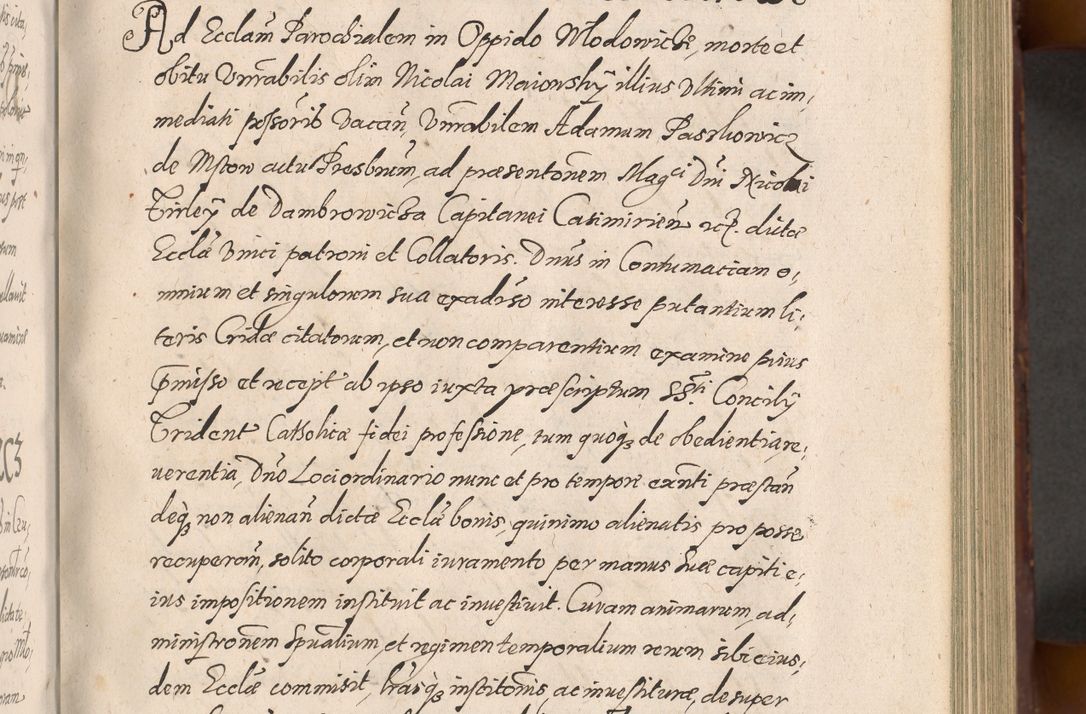 Ad Ecclam̄ Parochialem in Oppido Włodowicze, morte et
obitu Vnrabilis olim Nicolai Maionskÿ illius Vltimi ac im,
mediati possōris Vacan̄, Vnrabilem Adamum Paszkowicz
de Mstow actu Presbrum̄, ad præsentōnem Magci Dni Nicolai
Firleÿ de Dambrowicza Capitanei Casimirien̄ etc. dictæ
Ecclæ Vnici patroni et Collatoris. Dnūs in Contumaciam o,
mnium et singulorum sua exadiso interesse putantium li,
teris Cridæ citatorum, et non comparentium examine prius
p̄misso et recept ab ipso iuxta præscriptum SSti Concilÿ
Trident Catholicæ fidei professione, tum quoq̄ de obedientia re,
uerentia, Dnō Loci ordinario nunc et pro tempore exn̄ti præstan̄
deq̄ non alienan̄ dictæ Ecclæ bonis, quinimo alienatis pro posse
recuperan̄, solito corporali iuramento per manus suæ capiti e,
ius impositionem instituit ac inuestiuit. Curam animarum, ad,
ministronem̄ spualium̄, et regimen temporalium rerum sibi eius,
dem Ecclæ commisit, lrasq̄ institonis̄ ac inuestituræ, desuper